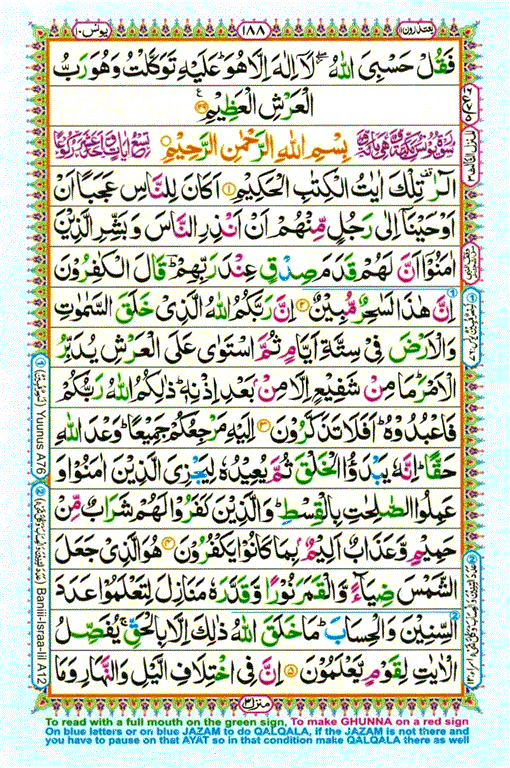 یعتذرون ۱۱
۱۸۸
یونس ۱۰
فَقُلْ حَسْبِیَ اللهُ ۖ لَاۤ اِلٰهَ اِلَّا هُوَ ؕ عَلَیْهِ تَوَكَّلْتُ وَهُوَ رَبُّ
الْعَرْشِ الْعَظِیْمِ ۝
بِسْمِ اللهِ الرَّحْمٰنِ الرَّحِیْمِ
الٓرٰ ۚ تِلْكَ اٰیٰتُ الْكِتٰبِ الْحَكِیْمِ ۝۱ اَكَانَ لِلنَّاسِ عَجَبًا اَنْ
اَوْحَیْنَاۤ اِلٰی رَجُلٍ مِّنْهُمْ اَنْ اَنْذِرِ النَّاسَ وَبَشِّرِ الَّذِیْنَ
اٰمَنُوْۤا اَنَّ لَهُمْ قَدَمَ صِدْقٍ عِنْدَ رَبِّهِمْ ؕ قَالَ الْكٰفِرُوْنَ
اِنَّ هٰذَا لَسٰحِرٌ مُّبِیْنٌ ۝۲ اِنَّ رَبَّكُمُ اللهُ الَّذِیْ خَلَقَ السَّمٰوٰتِ
وَالْاَرْضَ فِیْ سِتَّةِ اَیَّامٍ ثُمَّ اسْتَوٰی عَلَی الْعَرْشِ یُدَبِّرُ
الْاَمْرَ ؕ مَا مِنْ شَفِیْعٍ اِلَّا مِنْۢ بَعْدِ اِذْنِهٖ ؕ ذٰلِكُمُ اللهُ رَبُّكُمْ
فَاعْبُدُوْهُ ؕ اَفَلَا تَذَكَّرُوْنَ ۝۳ اِلَیْهِ مَرْجِعُكُمْ جَمِیْعًا ؕ وَعْدَ اللهِ
حَقًّا ؕ اِنَّهٗ یَبْدَؤُا الْخَلْقَ ثُمَّ یُعِیْدُهٗ لِیَجْزِیَ الَّذِیْنَ اٰمَنُوْا وَ
عَمِلُوا الصّٰلِحٰتِ بِالْقِسْطِ ؕ وَالَّذِیْنَ كَفَرُوْا لَهُمْ شَرَابٌ مِّنْ
حَمِیْمٍ وَّعَذَابٌ اَلِیْمٌۢ بِمَا كَانُوْا یَكْفُرُوْنَ ۝۴ هُوَ الَّذِیْ جَعَلَ
الشَّمْسَ ضِیَآءً وَّالْقَمَرَ نُوْرًا وَّقَدَّرَهٗ مَنَازِلَ لِتَعْلَمُوْا عَدَدَ
السِّنِیْنَ وَالْحِسَابَ ؕ مَا خَلَقَ اللهُ ذٰلِكَ اِلَّا بِالْحَقِّ ۚ یُفَصِّلُ
الْاٰیٰتِ لِقَوْمٍ یَّعْلَمُوْنَ ۝۵ اِنَّ فِی اخْتِلَافِ الَّیْلِ وَالنَّهَارِ وَمَا
منزل ۳
Yuunus A76
Baniii-Israa-Iil A12
To read with a full mouth on the green sign, To make GHUNNA on a red sign
On blue letters or on blue JAZAM to do QALQALA, if the JAZAM is not there and
you have to pause on that AYAT so in that condition make QALQALA there as well